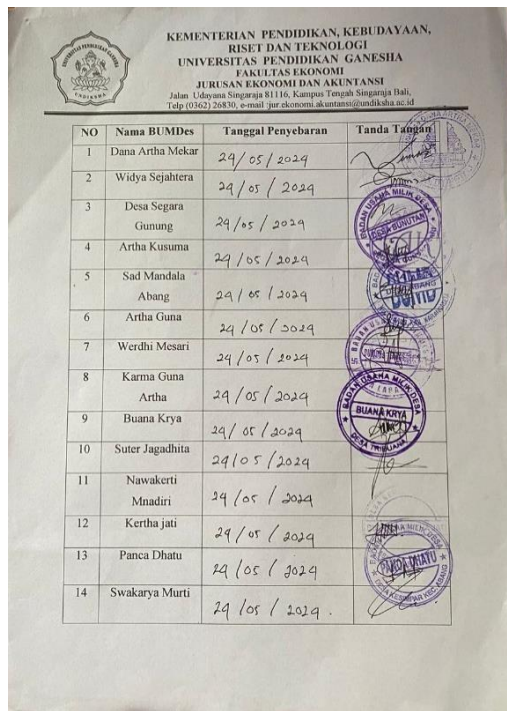 KEMENTERIAN PENDIDIKAN, KEBUDAYAAN,
RISET DAN TEKNOLOGI
UNIVERSITAS PENDIDIKAN GANESHA
FAKULTAS EKONOMI
JURUSAN EKONOMI DAN AKUNTANSI
Jalan Udayana Singaraja 81116, Kampus Tengah Singaraja Bali,
Telp (0362) 26830, e-mail :jur.ekonomi.akuntansi@undiksha.ac.id
UNIVERSITAS PENDIDIKAN GANESHA
UNDIKSHA
NO Nama BUMDes Tanggal Penyebaran Tanda Tangan
1 Dana Artha Mekar 29/05/2024
2 Widya Sejahtera 29/05/2024
3 Desa Segara
Gunung 29/05/2024
BADAN USAHA MILIK DESA
DESA BUNUTAN
4 Artha Kusuma 29/05/2024
5 Sad Mandala
Abang 29/05/2024
6 Artha Guna 29/05/2024
7 Werdhi Mesari 29/05/2024
8 Karma Guna
Artha 29/05/2024
BADAN USAHA MILIK DESA
BUANA KRYA
DESA TRIBUANA
9 Buana Krya 29/05/2024
10 Suter Jagadhita 29/05/2024
11 Nawakerti
Mnadiri 29/05/2024
12 Kertha jati 29/05/2024
13 Panca Dhatu 29/05/2024
PANCA DHATU
DESA KESIMPAR KEC. ABANG
14 Swakarya Murti 29/05/2024.